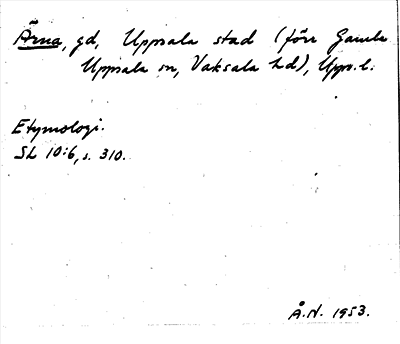 Ärna, gd, Uppsala stad (förr Gamla
Uppsala sn, Vaksala hd), Upps. l.
Etymologi.
SL 10:6, s. 310.
Å.N. 1953.